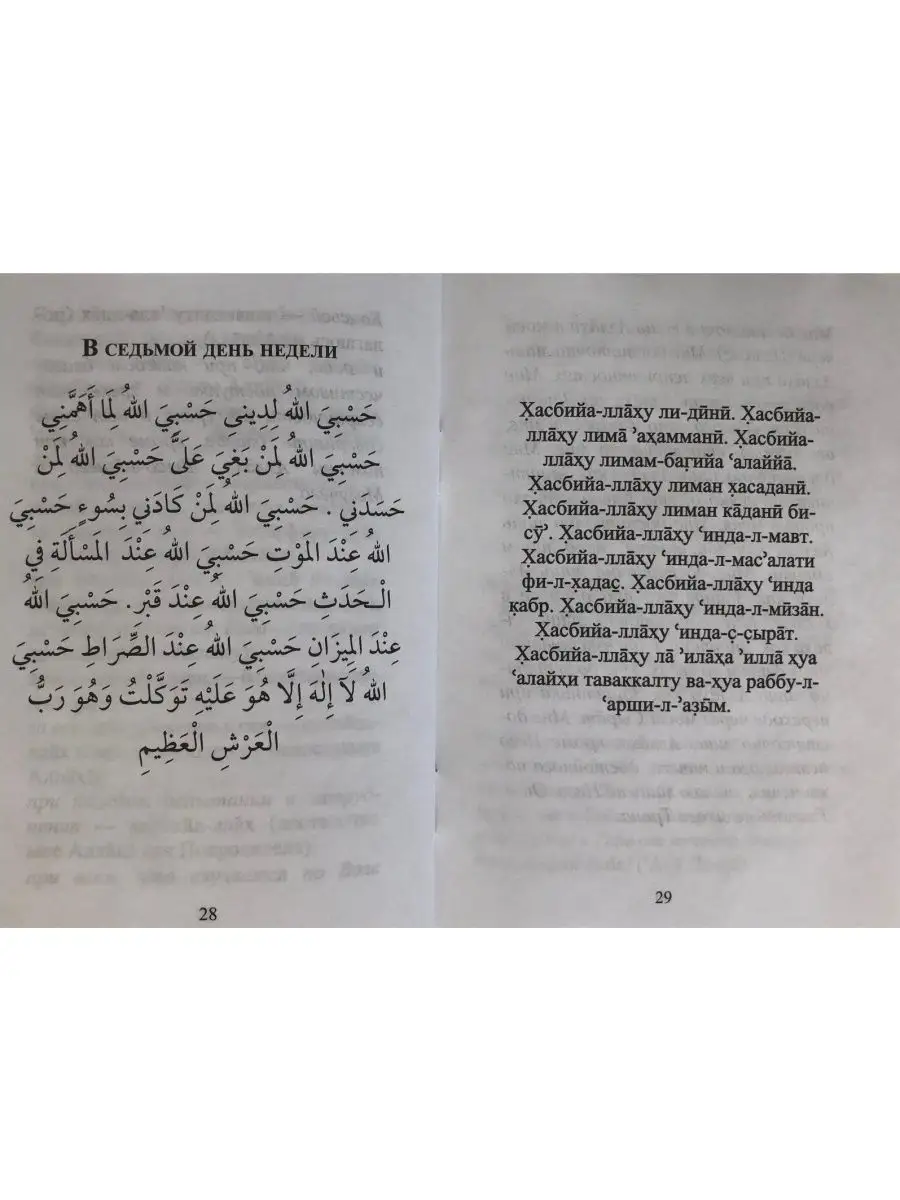 В СЕДЬМОЙ ДЕНЬ НЕДЕЛИ
حَسْبِيَ اللهُ لِدِينِي حَسْبِيَ اللهُ لِمَا أَهَمَّنِي
حَسْبِيَ اللهُ لِمَنْ بَغِيَ عَلَىَّ حَسْبِيَ اللهُ لِمَنْ
حَسَدَنِي . حَسْبِيَ اللهُ لِمَنْ كَادَنِي بِسُوءٍ حَسْبِيَ
اللهُ عِنْدَ المَوْتِ حَسْبِيَ اللهُ عِنْدَ المَسْأَلَةِ فِي
الْـحَدَثِ حَسْبِيَ اللهُ عِنْدَ قَبْرِ. حَسْبِيَ اللهُ
عِنْدَ المِيزَانِ حَسْبِيَ اللهُ عِنْدَ الصِّرَاطِ حَسْبِيَ
اللهُ لَآ إِلٰهَ إِلَّا هُوَ عَلَيْهِ تَوَكَّلْتُ وَهُوَ رَبُّ
الْعَرْشِ الْعَظِيمِ
28
Х̣асбийа-лла̄ху ли-дӣнӣ. Х̣асбийа-
лла̄ху лима̄ ʾаҳамманӣ. Х̣асбийа-
лла̄ху лимам-баг̣ийа ʿалаййа̄.
Х̣асбийа-лла̄ху лиман х̣асаданӣ.
Х̣асбийа-лла̄ху лиман ка̄данӣ би-
сӯʾ. Х̣асбийа-лла̄ху ʿинда-л-мавт.
Х̣асбийа-лла̄ху ʿинда-л-масʾалати
фи-л-х̣адас̱. Х̣асбийа-лла̄ху ʿинда
к̣абр. Х̣асбийа-лла̄ху ʿинда-л-мӣза̄н.
Х̣асбийа-лла̄ху ʿинда-с̣-с̣ыра̄т.
Х̣асбийа-лла̄ху ла̄ ʾила̄ҳа ʾилла̄ ҳуа
ʿалайҳи таваккалту ва-ҳуа раббу-л-
ʿарши-л-ʾаз̣ы̄м.
29